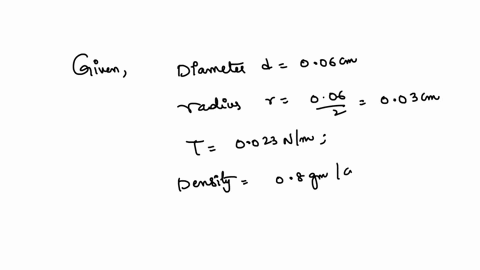 Given, Diameter d = 0.06 cm
radius r = 0.06/2 = 0.03 cm
T = 0.023 N/m ;
Density = 0.8 gm/c